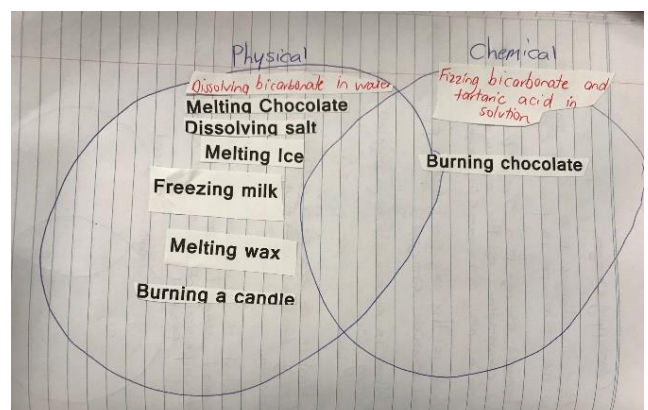 Physical
Chemical
Dissolving bicarbonate in water
Melting Chocolate
Dissolving salt
Melting Ice
Freezing milk
Melting wax
Burning a candle
Fizzing bicarbonate and
tartaric acid in
solution
Burning chocolate